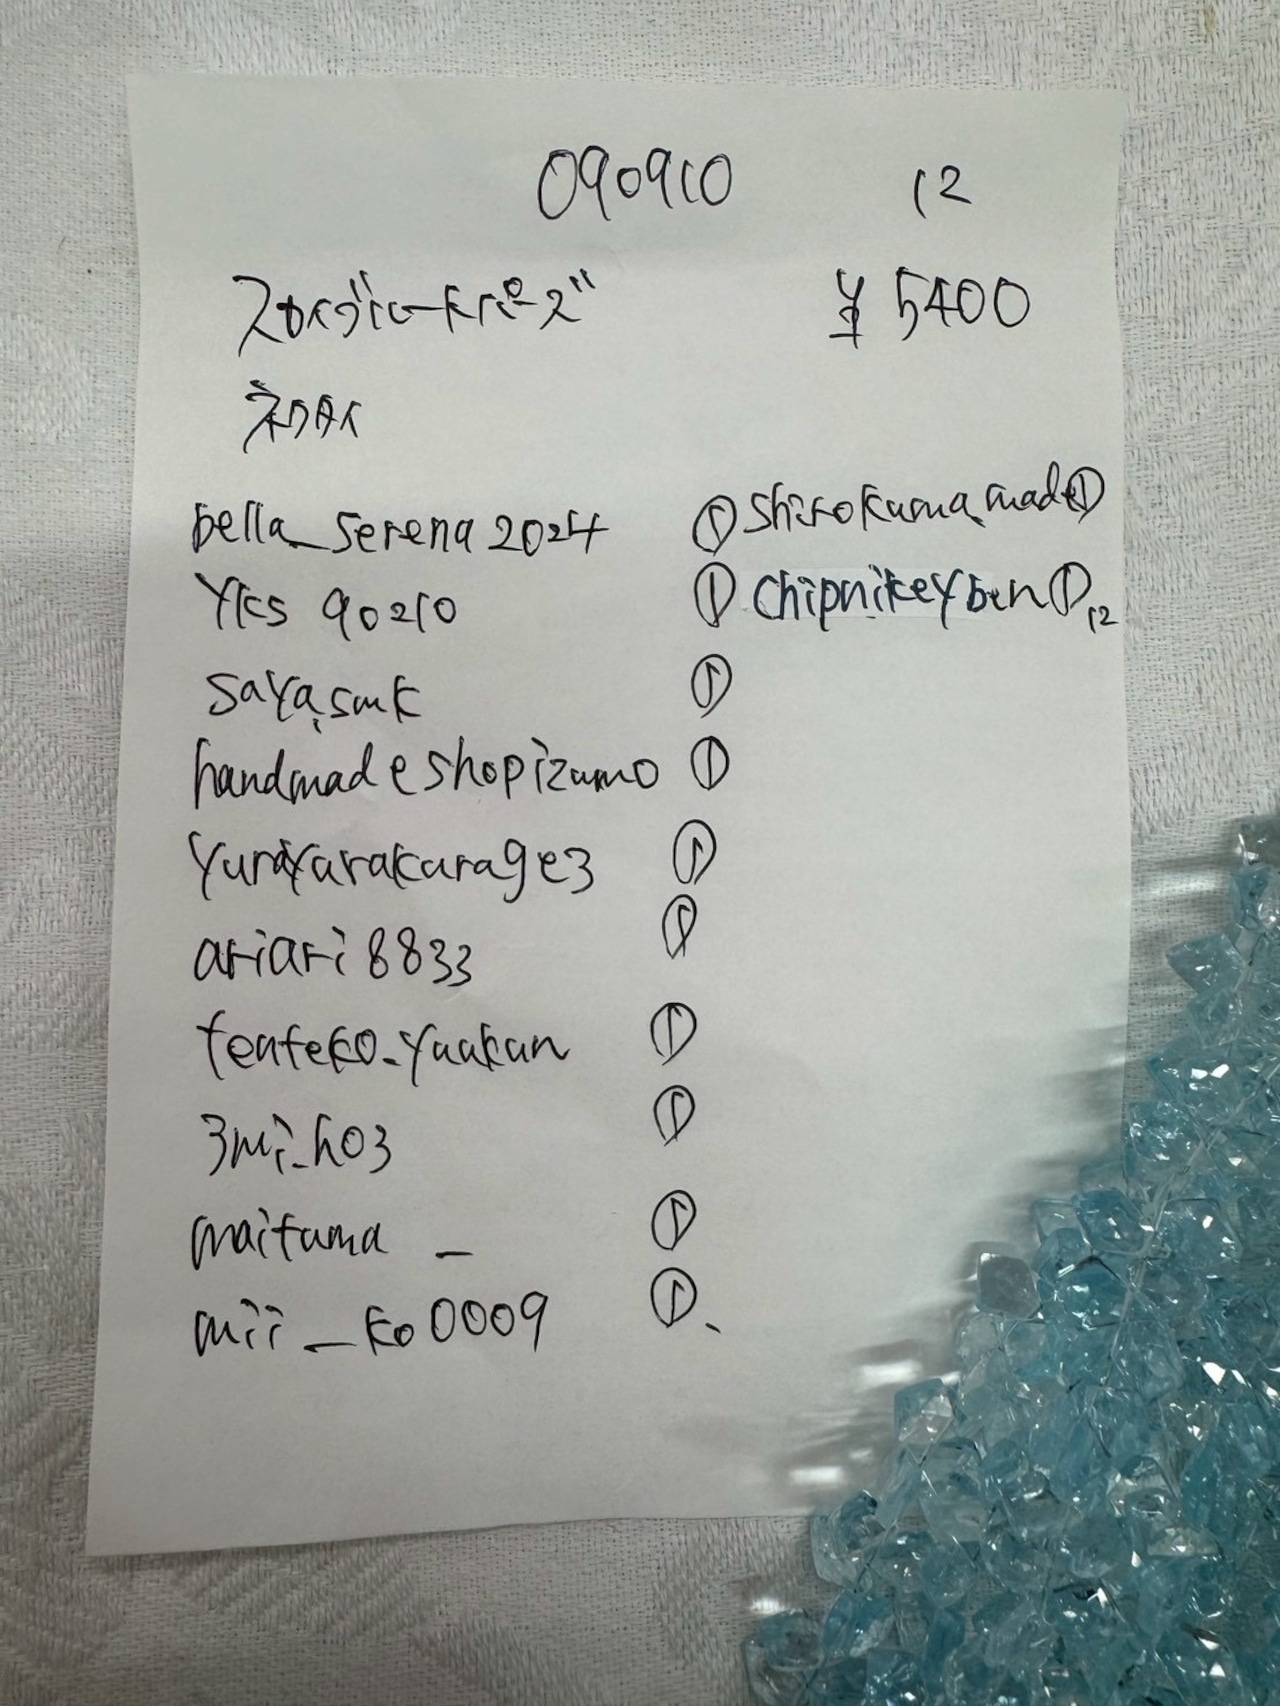 090910 12
スカイブルートパーズ ¥5400
ネクタイ
bella_serena2024 ① shirokuma.made ①
yks90210 ① chipnikeyben ① 12
saya.smk ①
handmadeshopizumo ①
yurayurakurage3 ①
ariari8833 ①
tenteko_yuukun ①
3mi_h03 ①
maituma_ ①
mii_ko0009 ①